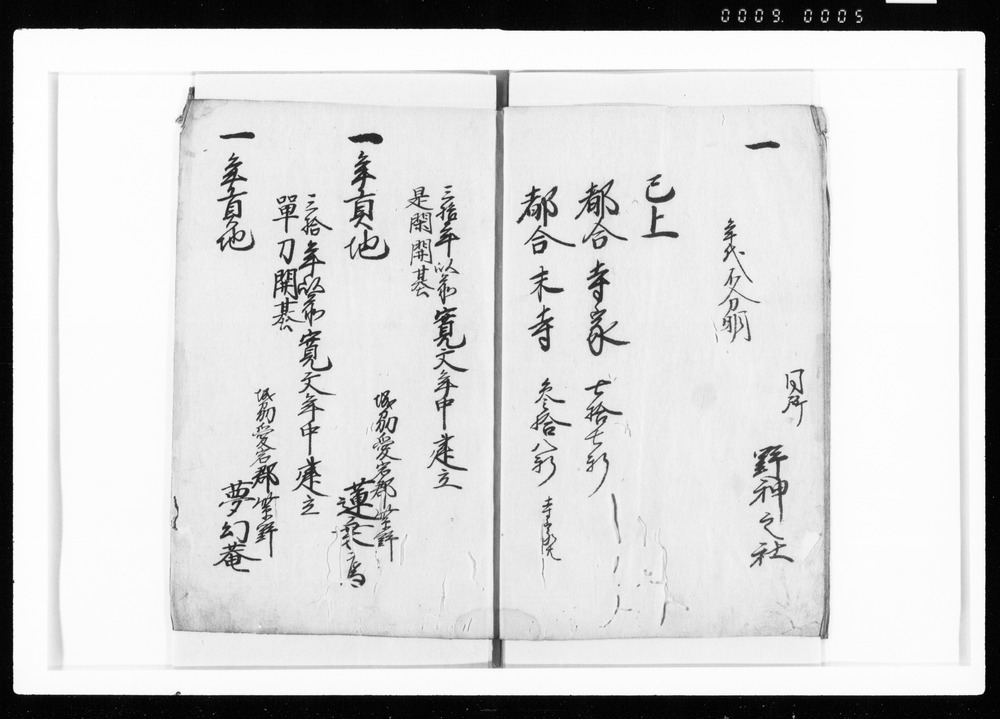 0009 0005
一
年代不分明
同所
野神之社
已上
都合寺家 七拾七軒
都合末寺 叁拾八軒
三拾年以前寛文年中建立
是閑開基
一年貢地
城州愛宕郡紫野
三拾年以前寛文年中建立
單刀開基
一年貢地
城州愛宕郡紫野
夢幻菴